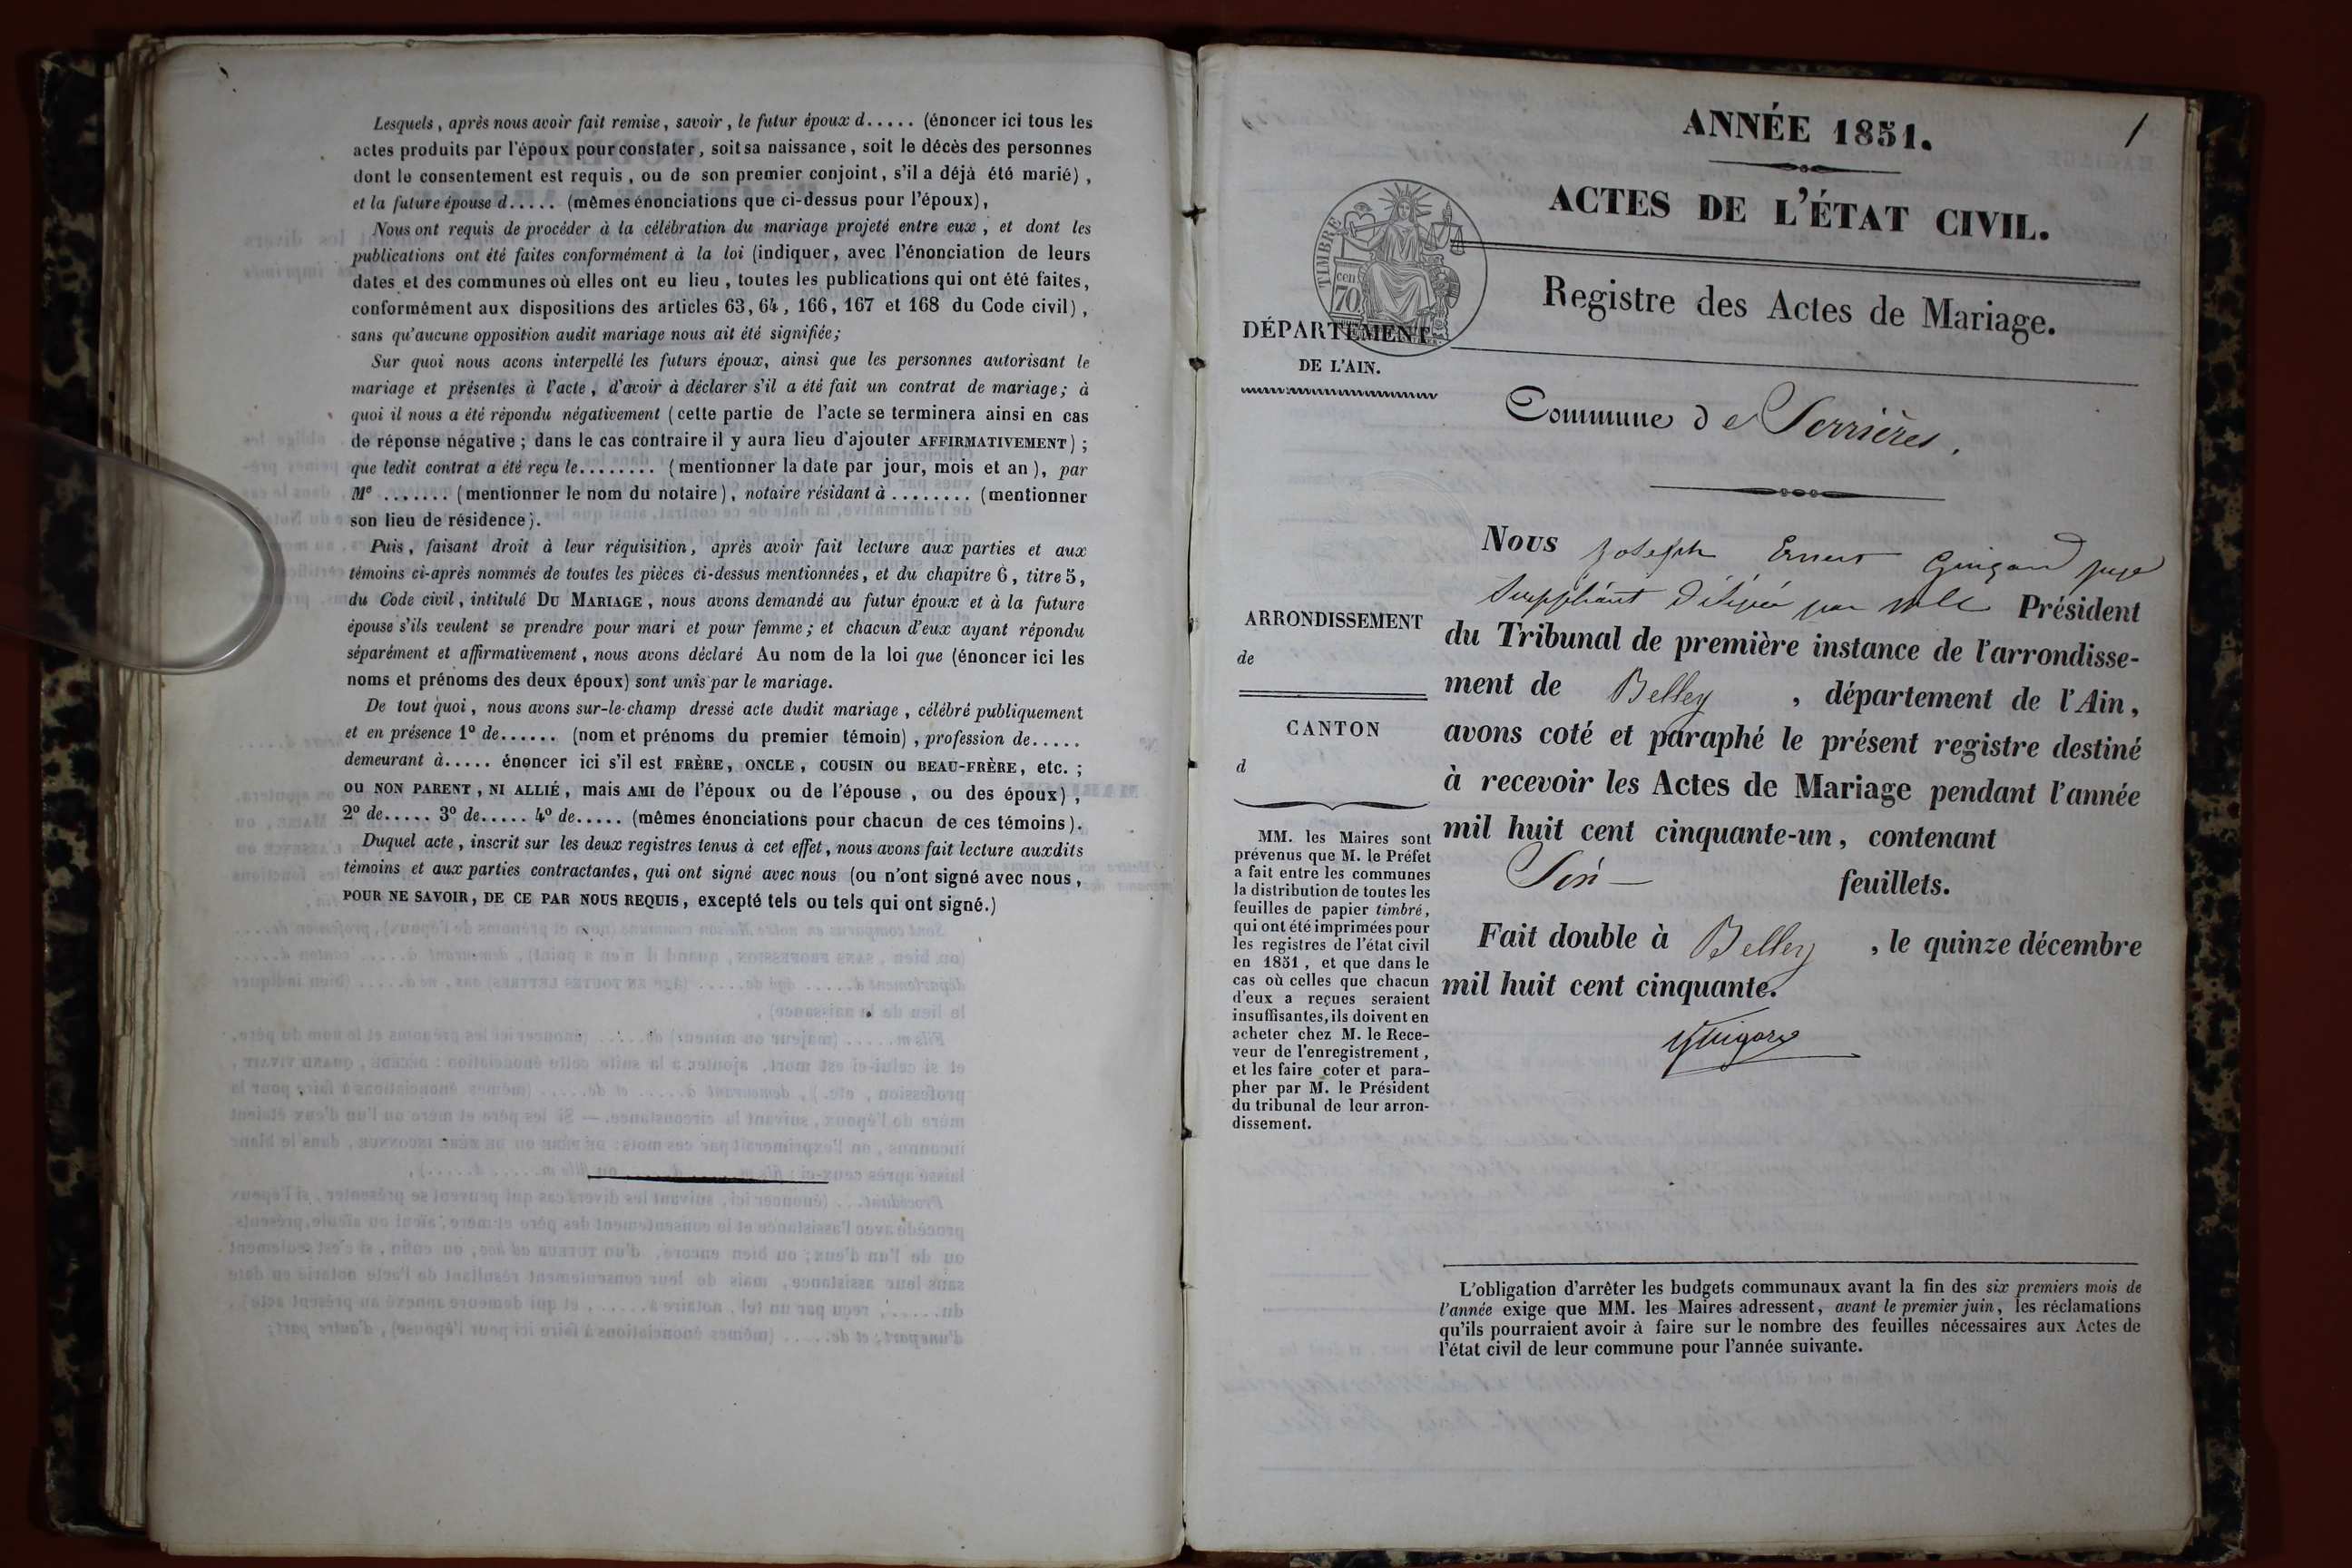 Lesquels, après nous avoir fait remise, savoir, le futur époux d..... (énoncer ici tous les
actes produits par l'époux pour constater, soit sa naissance, soit le décès des personnes
dont le consentement est requis, ou de son premier conjoint, s'il a déjà été marié),
et la future épouse d..... (mêmes énonciations que ci-dessus pour l'époux),
Nous ont requis de procéder à la célébration du mariage projeté entre eux, et dont les
publications ont été faites conformément à la loi (indiquer, avec l'énonciation de leurs
dates et des communes où elles ont eu lieu, toutes les publications qui ont été faites,
conformément aux dispositions des articles 63, 64, 166, 167 et 168 du Code civil),
sans qu'aucune opposition audit mariage nous ait été signifiée;
Sur quoi nous acons interpellé les futurs époux, ainsi que les personnes autorisant le
mariage et présentes à l'acte, d'avoir à déclarer s'il a été fait un contrat de mariage; à
quoi il nous a été répondu négativement (cette partie de l'acte se terminera ainsi en cas
de réponse négative; dans le cas contraire il y aura lieu d'ajouter AFFIRMATIVEMENT);
que ledit contrat a été reçu le........ (mentionner la date par jour, mois et an), par
Me ....... (mentionner le nom du notaire), notaire résidant à ........ (mentionner
son lieu de résidence).
Puis, faisant droit à leur réquisition, après avoir fait lecture aux parties et aux
témoins ci-après nommés de toutes les pièces ci-dessus mentionnées, et du chapitre 6, titre 5,
du Code civil, intitulé DU MARIAGE, nous avons demandé au futur époux et à la future
épouse s'ils veulent se prendre pour mari et pour femme; et chacun d'eux ayant répondu
séparément et affirmativement, nous avons déclaré Au nom de la loi que (énoncer ici les
noms et prénoms des deux époux) sont unis par le mariage.
De tout quoi, nous avons sur-le-champ dressé acte dudit mariage, célébré publiquement
et en présence 1º de...... (nom et prénoms du premier témoin), profession de.....
demeurant à..... énoncer ici s'il est FRÈRE, ONCLE, COUSIN ou BEAU-FRÈRE, etc.;
ou NON PARENT, NI ALLIÉ, mais AMI de l'époux ou de l'épouse, ou des époux),
2º de..... 3º de..... 4º de..... (mêmes énonciations pour chacun de ces témoins).
Duquel acte, inscrit sur les deux registres tenus à cet effet, nous avons fait lecture auxdits
témoins et aux parties contractantes, qui ont signé avec nous (ou n'ont signé avec nous,
POUR NE SAVOIR, DE CE PAR NOUS REQUIS, excepté tels ou tels qui ont signé.)
1
ANNÉE 1851.
ACTES DE L'ÉTAT CIVIL.
TIMBRE
cen
70
Registre des Actes de Mariage.
DÉPARTEMENT
DE L'AIN.
Commune de Serrières.
Nous Joseph Ernest Guigard juge
Suppléant délégué par Mr le Président
du Tribunal de première instance de l'arrondisse-
ment de Belley, département de l'Ain,
avons coté et paraphé le présent registre destiné
à recevoir les Actes de Mariage pendant l'année
mil huit cent cinquante-un, contenant
feuillets.
Fait double à Belley, le quinze décembre
mil huit cent cinquante.
Guigard
ARRONDISSEMENT
de
CANTON
d
MM. les Maires sont
prévenus que M. le Préfet
a fait entre les communes
la distribution de toutes les
feuilles de papier timbré,
qui ont été imprimées pour
les registres de l'état civil
en 1851, et que dans le
cas où celles que chacun
d'eux a reçues seraient
insuffisantes, ils doivent en
acheter chez M. le Rece-
veur de l'enregistrement,
et les faire coter et para-
pher par M. le Président
du tribunal de leur arron-
dissement.
L'obligation d'arrêter les budgets communaux avant la fin des six premiers mois de
l'année exige que MM. les Maires adressent, avant le premier juin, les réclamations
qu'ils pourraient avoir à faire sur le nombre des feuilles nécessaires aux Actes de
l'état civil de leur commune pour l'année suivante.